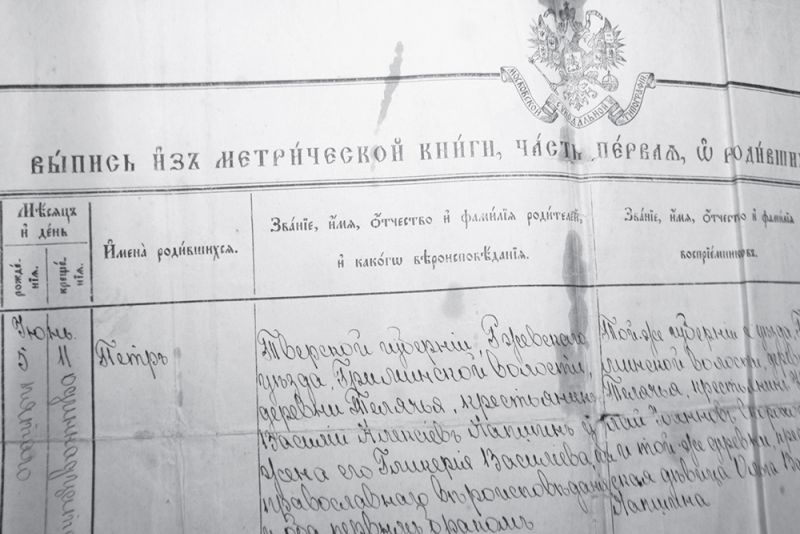 МОСКОВСКОЙ СѴНОДАЛЬНОЙ ТИПОГРАФІИ
ВЫ́ПИСЬ И҆ЗЪ МЕТРИ́ЧЕСКОЙ КНИ́ГИ, ЧА́СТЬ ПЕ́РВАЯ, Ѡ҆ РОДИ́ВШИХ
Мѣ́сяцъ
и҆ де́нь
рожде́-
нїя.
креще́-
нїя.
И҆мена̀ роди́вшихся.
Зва́нїе, и҆́мя, ѻ҆́тчество и҆ фами́лїя роди́телей,
и҆ како́гѡ вѣроисповѣ́данїя.
Зва́нїе, и҆́мя, ѻ҆́тчество и҆ фами́лїя
воспрїе́мниковъ.
Іюнь.
5. пятаго
11 одиннадцат
Петръ
Тверской губерніи, Ржевскаго
уѣзда, Гриминской волости,
деревни Телячья, крестьянинъ
Василій Алексѣевъ Лапшинъ и
жена его Гликерія Васильева, оба
православнаго вѣроисповѣдан
и оба первымъ бракомъ
Той же губерніи и уѣзда, Г
минской волости, дерев
Телячья, крестьянинъ
и той же деревни, кре
ская дѣвица Ва
Лапшина